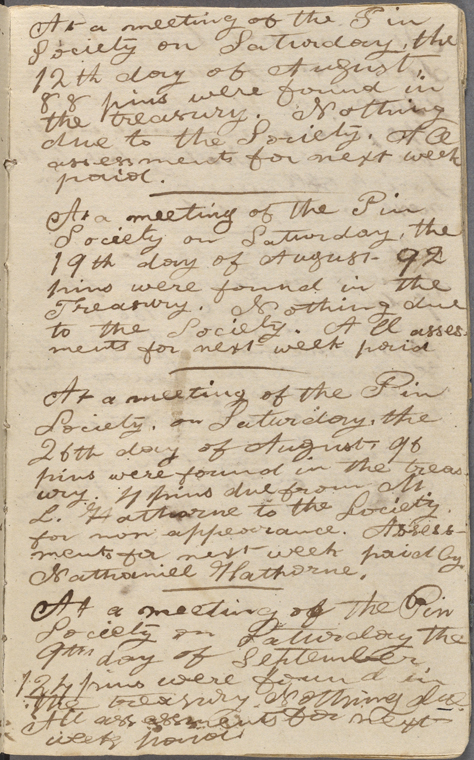 At a meeting of the Pin
Society on Saturday, the
12th day of August,
88 pins were found in
the treasury. Nothing
due to the Society. All
assessments for next week
paid.
At a meeting of the Pin
Society on Saturday, the
19th day of August 92
pins were found in the
Treasury. Nothing due
to the Society. All asses-
ments for next week paid
At a meeting of the Pin
Society, on Saturday, the
26th day of August, 96
pins were found in the treas-
ury. 4 pins due from M
L. Hathorne to the Society,
for non appearance. Assess-
ments for next week paid by
Nathaniel Hathorne.
At a meeting of the Pin
Society on Saturday the
9th day of September,
124 pins were found in
the treasury. Nothing due.
All assessments for next
week paid